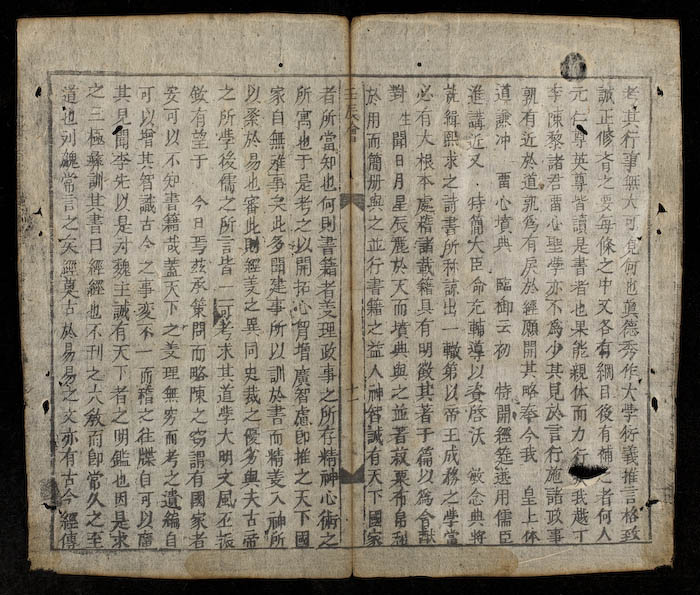 考其行事無大可見何也真德秀作大學衍義推言格致
誠正修齊之要每條之中又各有綱目後有補之者何人
元仁尊英尊皆讀是書者也果能親体而力行 我越丁
李陳黎諸君畱心聖學亦不為少其見於言行施諸政事
孰有近於道孰為有戾於經願開其略奉今我 皇上体
道謙冲 畱心墳典 臨御云初 特開經筵遴用儒臣
進講近又 特簡大臣命充輔導以資啓沃 敏念典將
就緝熙求之詩書所称諒出一轍第以帝王成務之學當
必有大根本處稽諸載籍具有明徵其著于篇以為會猷
對 生聞日月星辰麗於天而墳典與之並著菽粟布帛利
於用而簡册與之並行書籍之益人神智誠有天下國家
壬辰會
十一
者所當知也何則書籍者義理政事之所存精神心術之
所寓也于是考之以開拓心胷增廣智慮即推之天下國
家自無难事矣此多聞建事所以訓於書而精義入神所
以係於易也審此則經義之異同史裁之優劣與夫古帝
之所學後儒之所言皆一二可考求其道學大明文風丕振
欽有望于 今日焉茲承策問而略陳之窃謂有國家者
安可以不知書籍哉蓋天下之義理無穷而考之遺編自
可以增其智識古今之事变不一而稽之往牒自可以廣
其見聞李先以是对魏主誠有天下者之明鑑也因是求
之三極彝訓其書曰經經也不刊之六教而即常久之至
道也刘勰常言之矣經莫古於易易之文亦有古今經傳